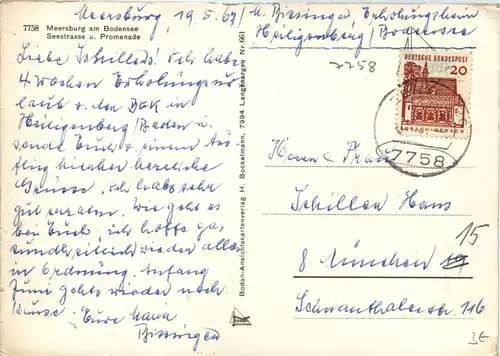 7758 Meersburg am Bodensee
Seestrasse u. Promenade
Meersburg 19.5.69 / M. Bissinger Erholungsheim
Heiligenberg / Bodensee
7758
Liebe Schillers! Ich habe
4 Wochen Erholungsur-
laub v. der BEK in
Heiligenberg/Baden u.
sende Euch v. einem Aus-
flug hierher herzliche
Grüsse, ich habs sehr
gut erraten. Wie geht es
bei Euch? ich hoffe ges
undheitlich wieder alles
in Ordnung. Anfang
Juni gehts wieder nach
Hause. Eure Maria
Bissinger
Bodan-Ansichtskartenverlag H. Bockelmann, 7994 Langenargen Nr. 661
DEUTSCHE BUNDESPOST
20
LORSCH/HESSEN
7758
Herrn u. Frau
Schiller Hans
8 München 15
Schwanthalerstr 116
3€